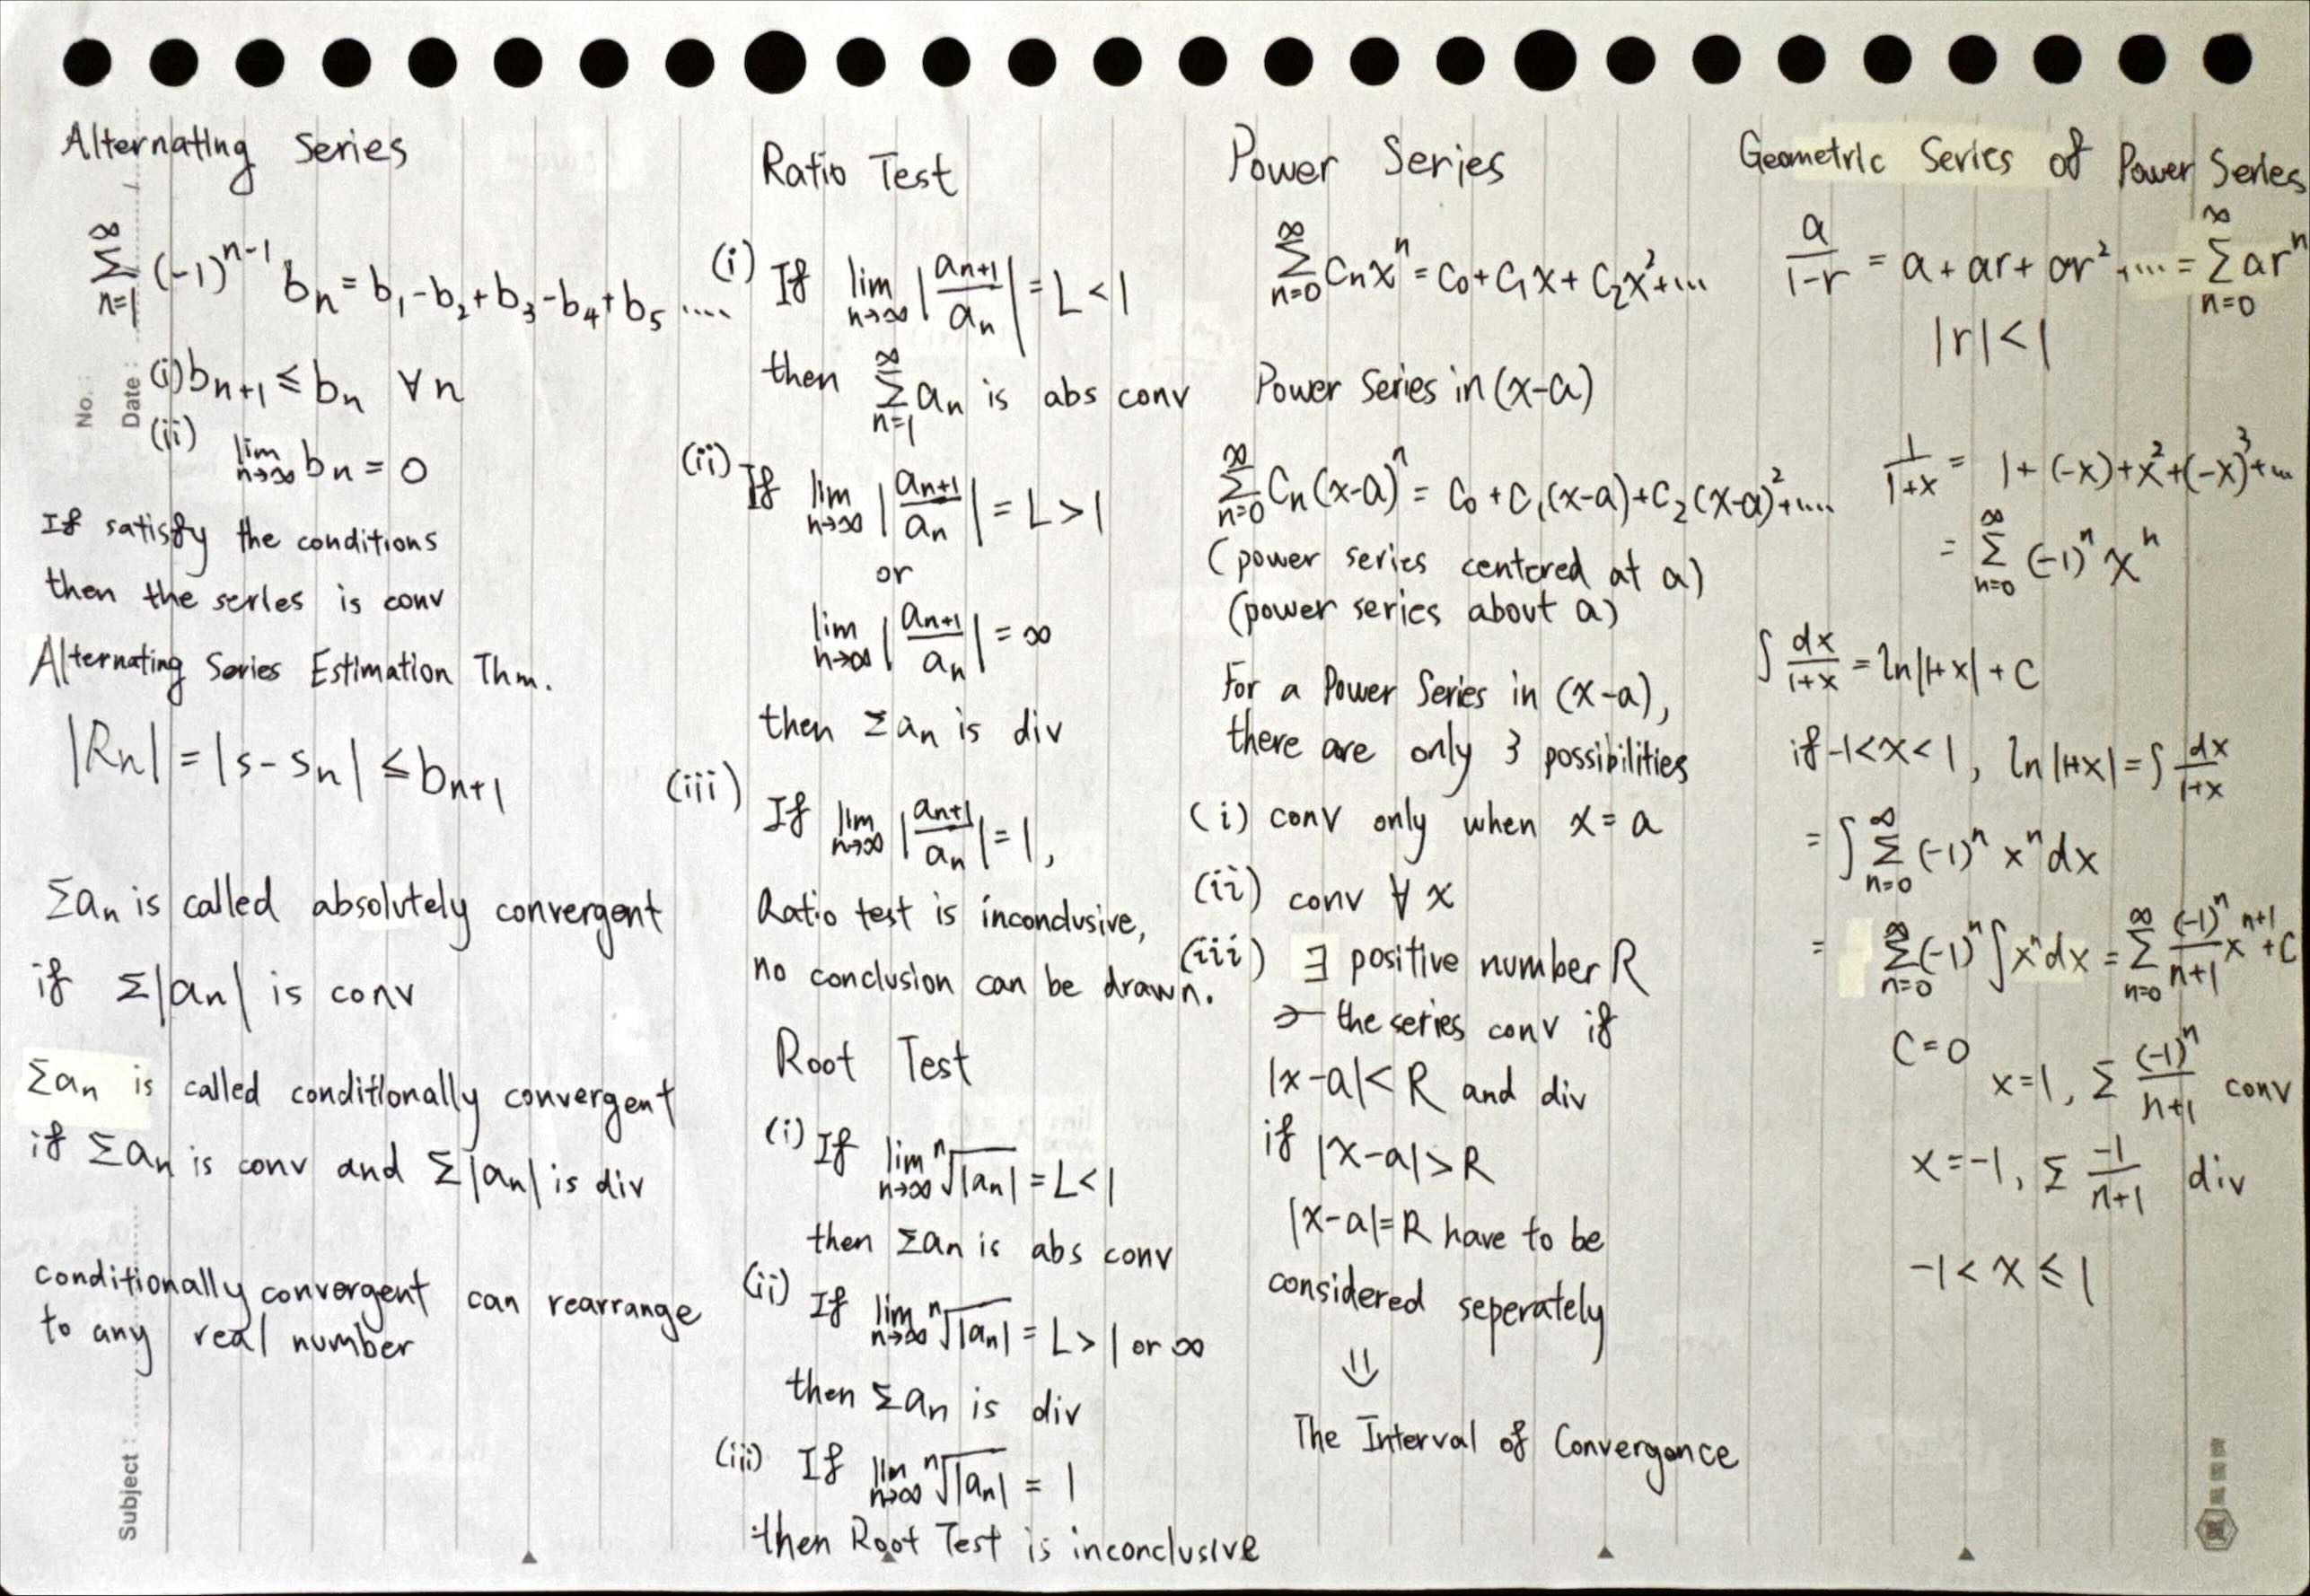 Alternating Series
∞
Σ (-1)^{n-1} b_n = b_1 - b_2 + b_3 - b_4 + b_5 ....
n=1
(i) b_{n+1} ≤ b_n ∀ n
(ii) lim_{n→∞} b_n = 0
If satisfy the conditions
then the series is conv
Alternating Series Estimation Thm.
|R_n| = |s - s_n| ≤ b_{n+1}
Σa_n is called absolutely convergent
if Σ|a_n| is conv
Σa_n is called conditionally convergent
if Σa_n is conv and Σ|a_n| is div
conditionally convergent can rearrange
to any real number
Ratio Test
(i) If lim_{n→∞} |a_{n+1}/a_n| = L < 1
then Σ_{n=1}^{∞} a_n is abs conv
(ii) If lim_{n→∞} |a_{n+1}/a_n| = L > 1
or
lim_{n→∞} |a_{n+1}/a_n| = ∞
then Σa_n is div
(iii) If lim_{n→∞} |a_{n+1}/a_n| = 1,
Ratio test is inconclusive,
no conclusion can be drawn.
Root Test
(i) If lim_{n→∞} ⁿ√|a_n| = L < 1
then Σa_n is abs conv
(ii) If lim_{n→∞} ⁿ√|a_n| = L > 1 or ∞
then Σa_n is div
(iii) If lim_{n→∞} ⁿ√|a_n| = 1
then Root Test is inconclusive
Power Series
Σ_{n=0}^{∞} C_n x^n = C_0 + C_1 x + C_2 x^2 + ...
Power Series in (x-a)
Σ_{n=0}^{∞} C_n (x-a)^n = C_0 + C_1 (x-a) + C_2 (x-a)^2 + ....
(power series centered at a)
(power series about a)
For a Power Series in (x-a),
there are only 3 possibilities
(i) conv only when x = a
(ii) conv ∀ x
(iii) ∃ positive number R
∋ the series conv if
|x-a| < R and div
if |x-a| > R
|x-a| = R have to be
considered seperately
⇓
The Interval of Convergence
Geometric Series of Power Series
a/(1-r) = a + ar + ar^2 + .... = Σ_{n=0}^{∞} ar^n
|r| < 1
1/(1+x) = 1 + (-x) + x^2 + (-x)^3 + ...
= Σ_{n=0}^{∞} (-1)^n x^n
∫ dx/(1+x) = ln|1+x| + C
if -1 < x < 1, ln|1+x| = ∫ dx/(1+x)
= ∫ Σ_{n=0}^{∞} (-1)^n x^n dx
= Σ_{n=0}^{∞} (-1)^n ∫ x^n dx = Σ_{n=0}^{∞} (-1)^n/(n+1) x^{n+1} + C
C = 0
x = 1, Σ (-1)^n/(n+1) conv
x = -1, Σ -1/(n+1) div
-1 < x ≤ 1
No. :
Date :
Subject :